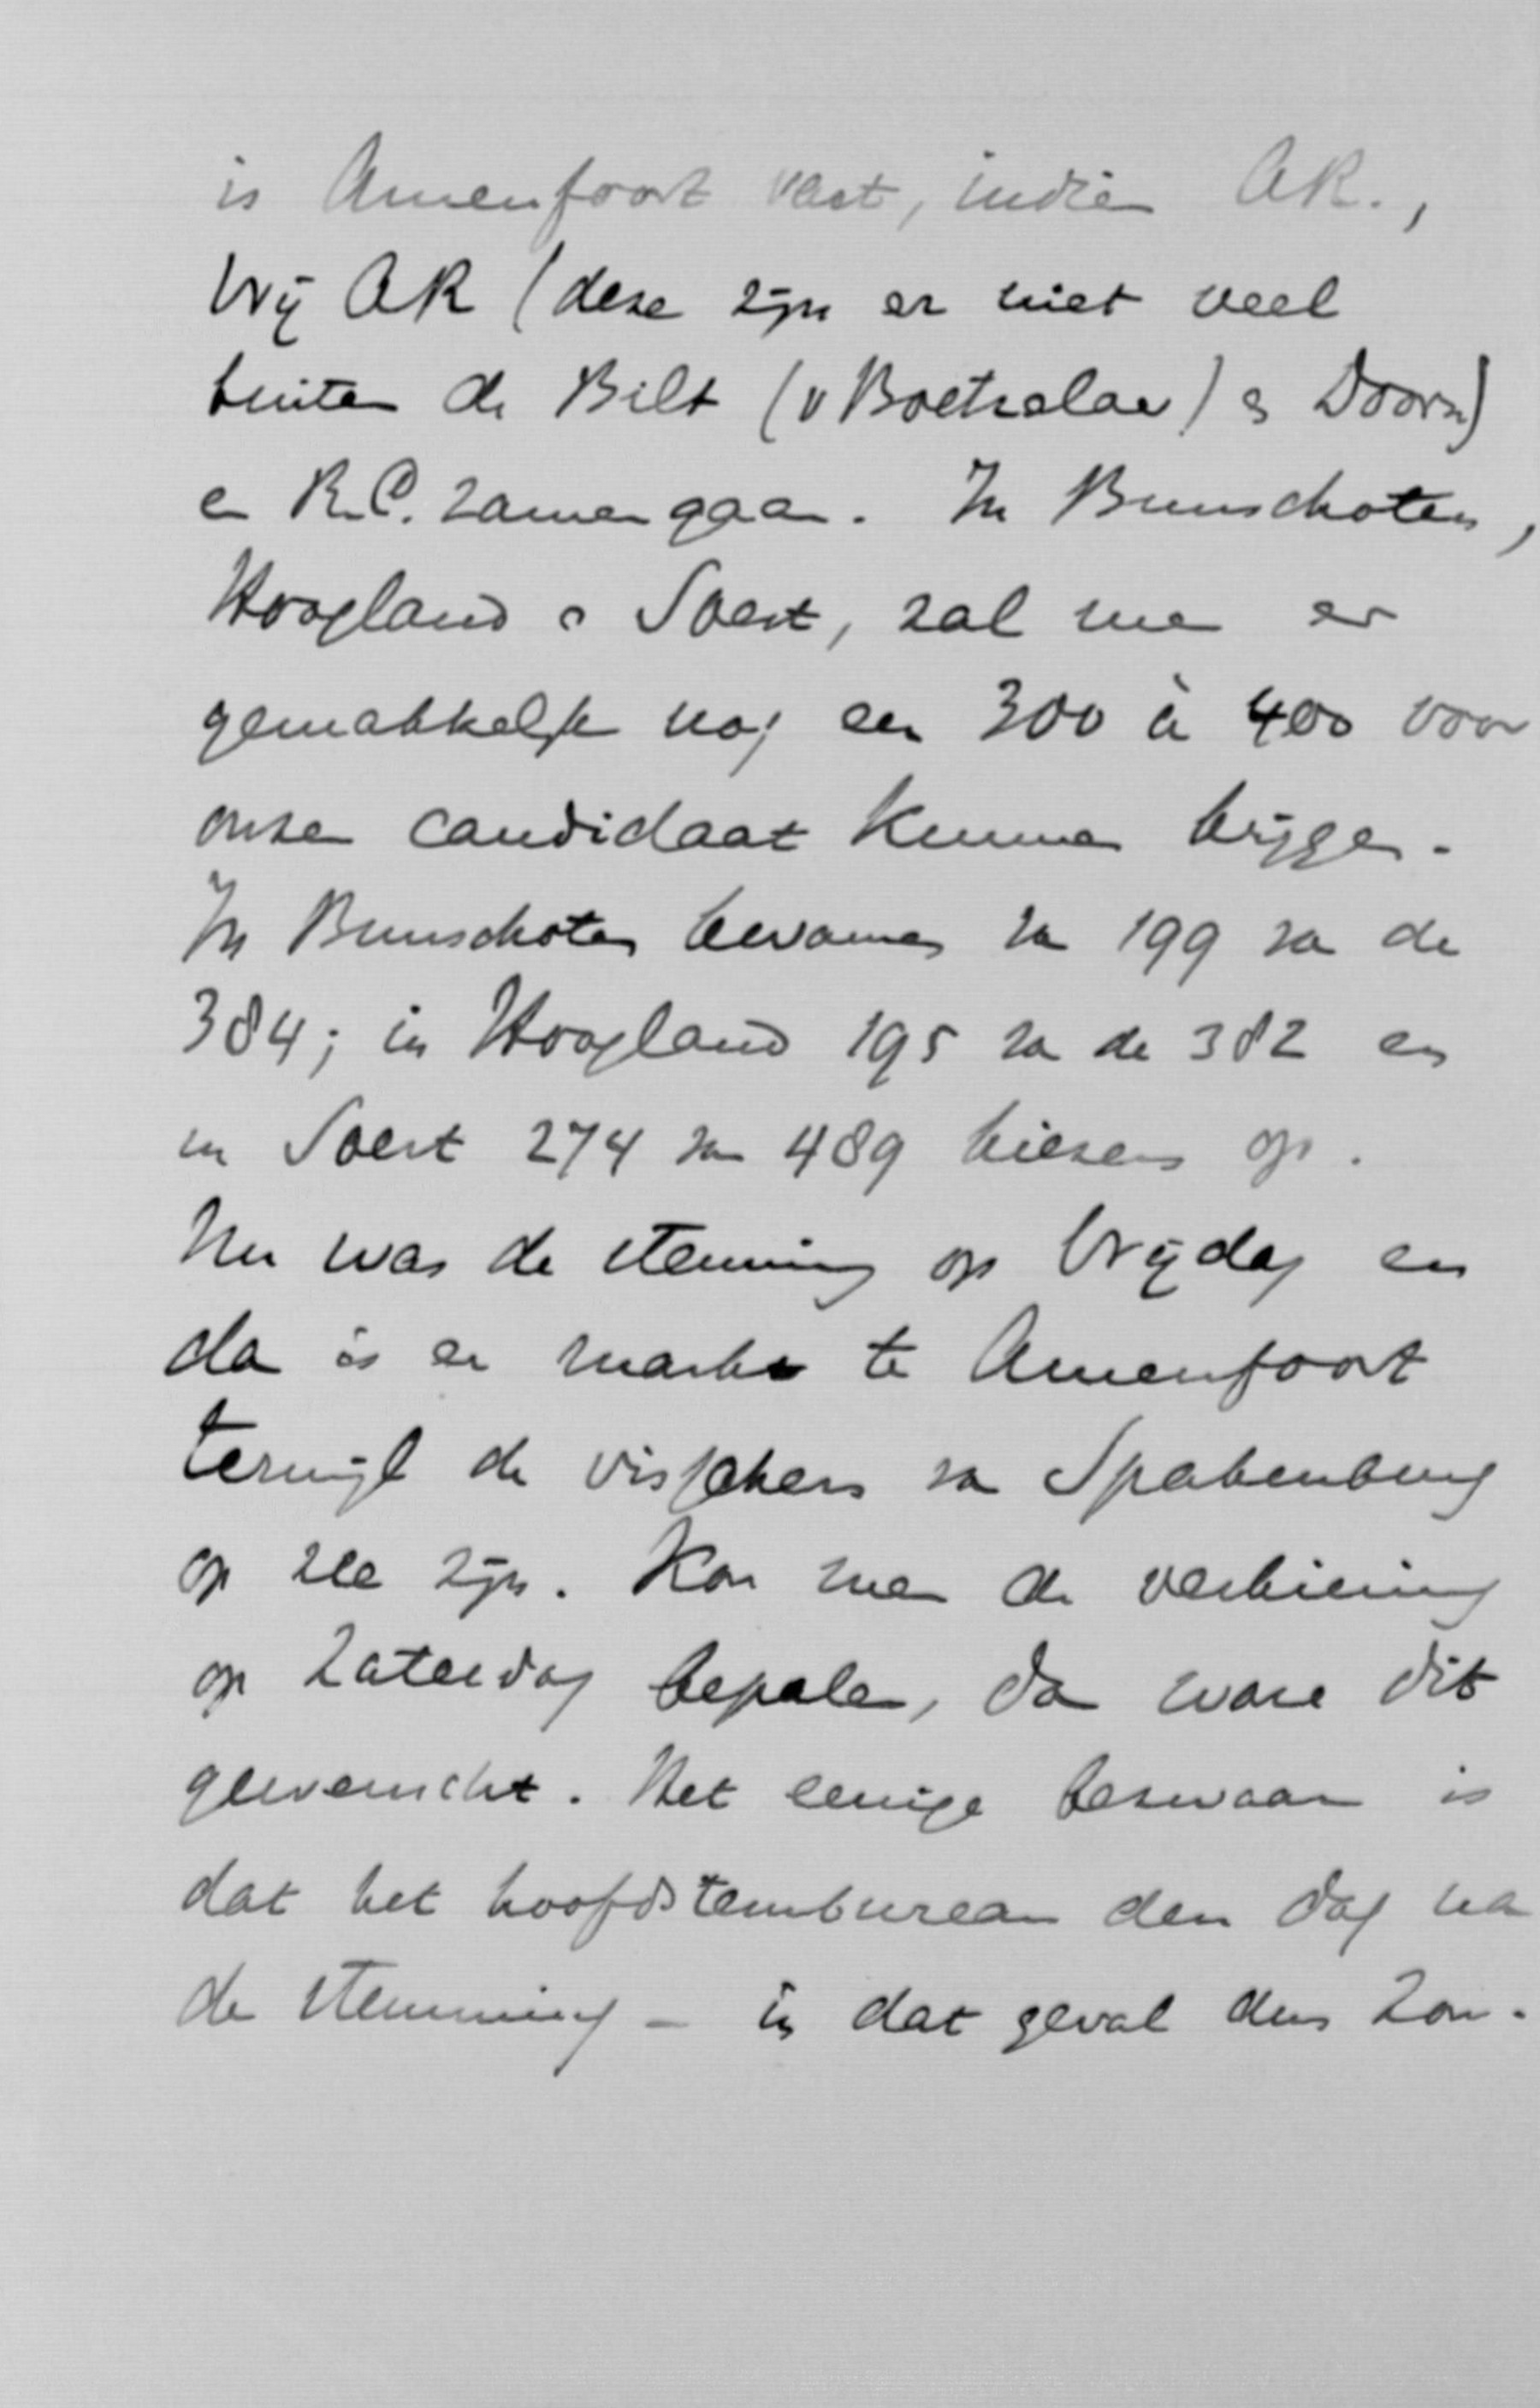 is Amersfoort vast, indien AR.,
Vrij AR (deze zijn er niet veel
buiten de Bilt (v Boetzelaer) en Doorn)
en R.C. zamengaan. In Bunschoten,
Hoogland en Soest, zal men er
gemakkelijk nog een 300 à 400 voor
onzen candidaat kunnen krijgen.
In Bunschoten kwamen van 199 van de
384; in Hoogland 195 van de 382 en
in Soest 274 van 489 kiezers op.
Nu was de stemming op Vrijdag en
dan is er markt te Amersfoort
terwijl de visschers van Spakenburg
op zee zijn. Kon men de verkiezing
op Zaterdag bepalen, dan ware dit
gewenscht. Het eenige bezwaar is
dat het hoofdstembureau den dag na
de stemming – in dat geval den Zon-